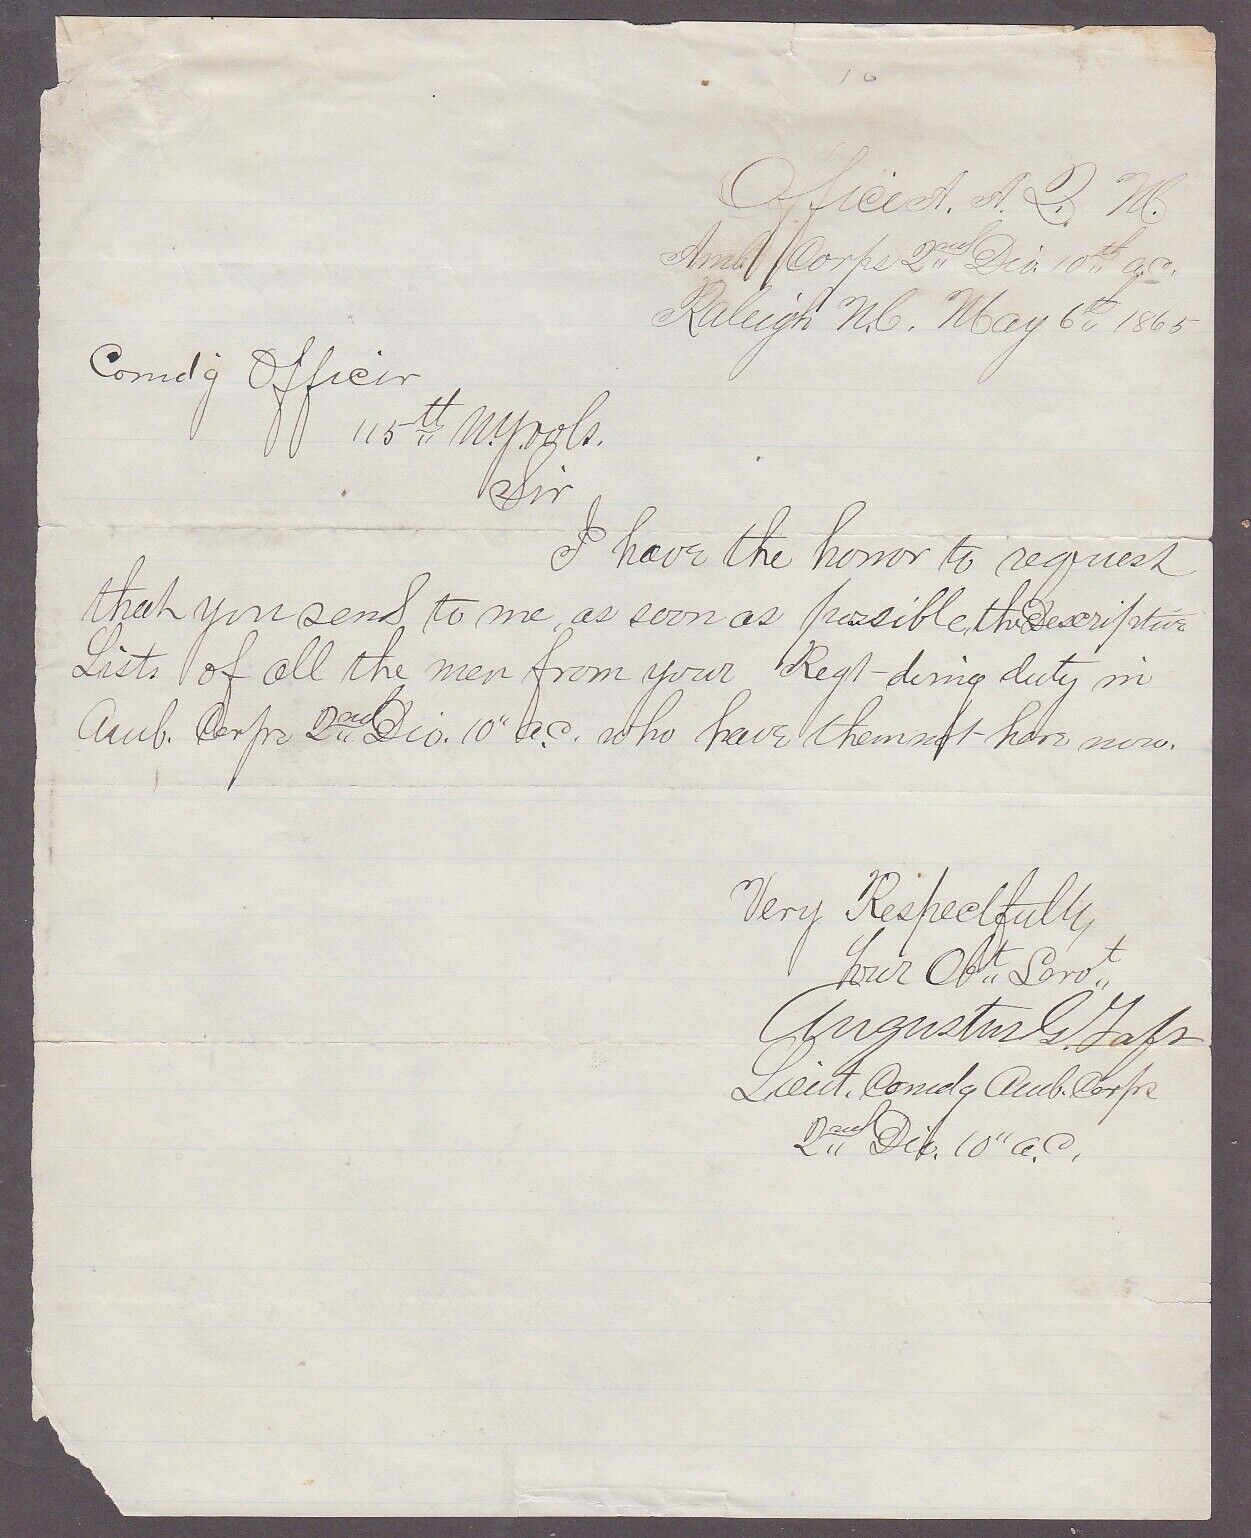 16
Office A. A. Q. M.
Amb. Corps 2nd Div. 10th A.C.
Raleigh N.C. May 6th 1865
Comd'g Officer
115th N.Y. Vols.
Sir
I have the honor to request
that you send to me, as soon as possible, the Descriptive
Lists of all the men from your Regt doing duty in
Amb. Corps 2nd Div. 10" A.C. who have them not here now.
Very Respectfully,
Your Obt Servt
Augustus G.
Lieut. Comdg Amb. Corps
2nd Div. 10" A.C.